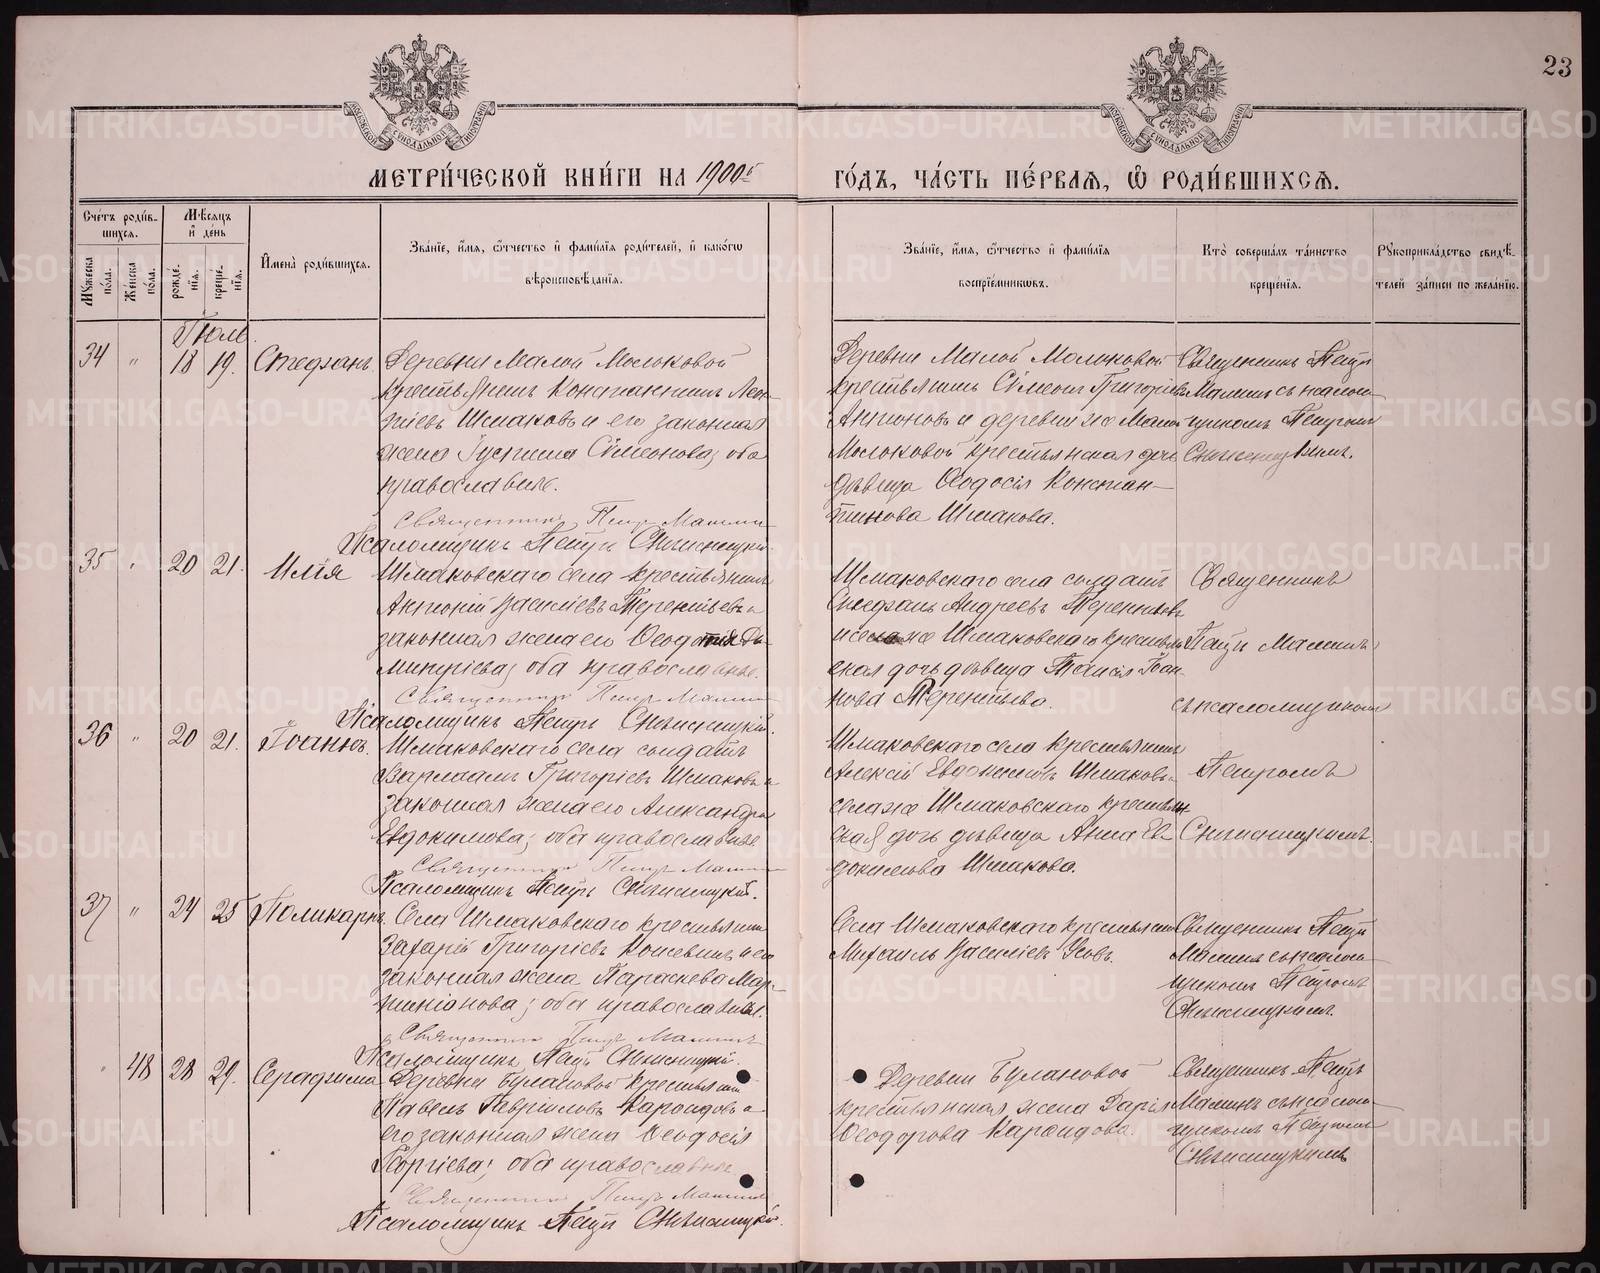 23
МОСКОВСКОЙ СѴНОДАЛЬНОЙ ТИПОГРАФІИ
МОСКОВСКОЙ СѴНОДАЛЬНОЙ ТИПОГРАФІИ
МЕТРИ́ЧЕСКОЙ КНИ́ГИ НА 1900й
ГО́ДЪ, ЧА́СТЬ ПЕ́РВАЯ, Ѡ҆ РОДИ́ВШИХСЯ.
Сче́тъ роди́в-
шихся.
Мѣ́сяцъ
и҆ де́нь
Му́жеска по́ла.
Же́нска по́ла.
рожде́-
нїя.
креще́-
нїя.
И҆мена̀ роди́вшихся.
Зва́нїе, и҆́мя, ѻ҆́тчество и҆ фами́лїя роди́телей, и҆ како́гѡ
вѣроисповѣ́данїя.
Зва́нїе, и҆́мя, ѻ҆́тчество и҆ фами́лїя
воспрїе́мникѡвъ.
Кто̀ соверша́лъ та́инство
креще́нїя.
Рꙋкоприкла́дство свидѣ́-
телей за́писи по жела́нїю.
Іюль.
34 " 18 19. Стефанъ
Деревни Малой Молоковой
крестьянинъ Константинъ Леон-
тіевъ Шмаковъ и его законная
жена Іустина Симеонова; оба
православные.
Священникъ Петръ Мамин
Псаломщикъ Петръ Снѣсницкій.
Деревни Малой Молоковой
крестьянинъ Симеонъ Григорьевъ
Антоновъ и деревни же Малой
Молоковой крестьянская дочь
дѣвица Ѳеодосія Констан-
тинова Шмакова.
Священникъ Петръ
Маминъ съ псалом-
щикомъ Петромъ
Снѣсницкимъ.
35 " 20 21. Илія
Шмаковскаго села крестьянинъ
Антоній Василіевъ Терентьевъ и
законная жена его Ѳеодотія Ди-
митріева; оба православные.
Священникъ Петръ Мамин
Псаломщикъ Петръ Снѣсницкій.
Шмаковскаго села солдатъ
Стефанъ Андреевъ Терентьевъ
и села же Шмаковскаго крестьян
ская дочь дѣвица Таисія Іоан-
нова Терентьева.
Священникъ
Петръ Маминъ
съ псаломщикомъ
36 " 20 21. Іоаннъ.
Шмаковскаго села солдатъ
Варлаамъ Григоріевъ Шмаковъ и
законная жена его Александра
Евдокимова; оба православные
Священникъ Петръ Мамин
Псаломщикъ Петръ Снѣсницкій.
Шмаковскаго села крестьянинъ
Алексій Евдокимовъ Шмаковъ и
села же Шмаковскаго крестьян
ская дочь дѣвица Анна Ев-
докимова Шмакова.
Петромъ
Снѣсницкимъ.
37 " 24 25 Поликарпъ.
Села Шмаковскаго крестьянинъ
Захарій Григоріевъ Кошевинъ и его
законная жена Параскева Мар-
тиніонова; оба православные.
Священникъ Петръ Маминъ
Псаломщикъ Петръ Снѣсницкій.
Села Шмаковскаго крестьянинъ
Михаилъ Василіевъ Усовъ.
Священникъ Петръ
Маминъ съ псалом-
щикомъ Петромъ
Снѣсницкимъ.
48 28 29. Серафима
Деревни Булановой крестьянинъ
Павелъ Гавріиловъ Карандовъ и
его законная жена Ѳеодосія
Георгіева; оба православные
Священникъ Петръ Мамин
Псаломщикъ Петръ Снѣсницкій.
Деревни Булановой
крестьянская жена Дарія
Ѳеодорова Карандова.
Священникъ Петръ
Маминъ съ псалом-
щикомъ Петромъ
Снѣсницкимъ
METRIKI.GASO-URAL.RU